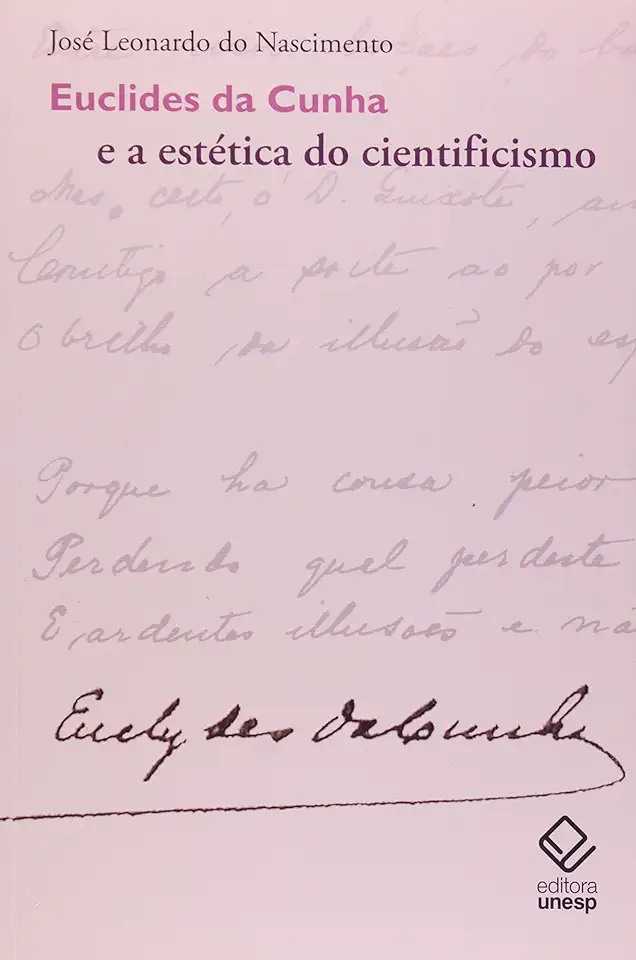 José Leonardo do Nascimento
Euclides da Cunha
e a estética do cientificismo
Mas, certo, ó D. Quixote,
Comtigo a sorte ao por
O brilho da illusão do esp
Porque ha cousa peior
Perdendo qual perdeste
E ardentes illusões e nã
Euclydes da Cunha
editora
unesp